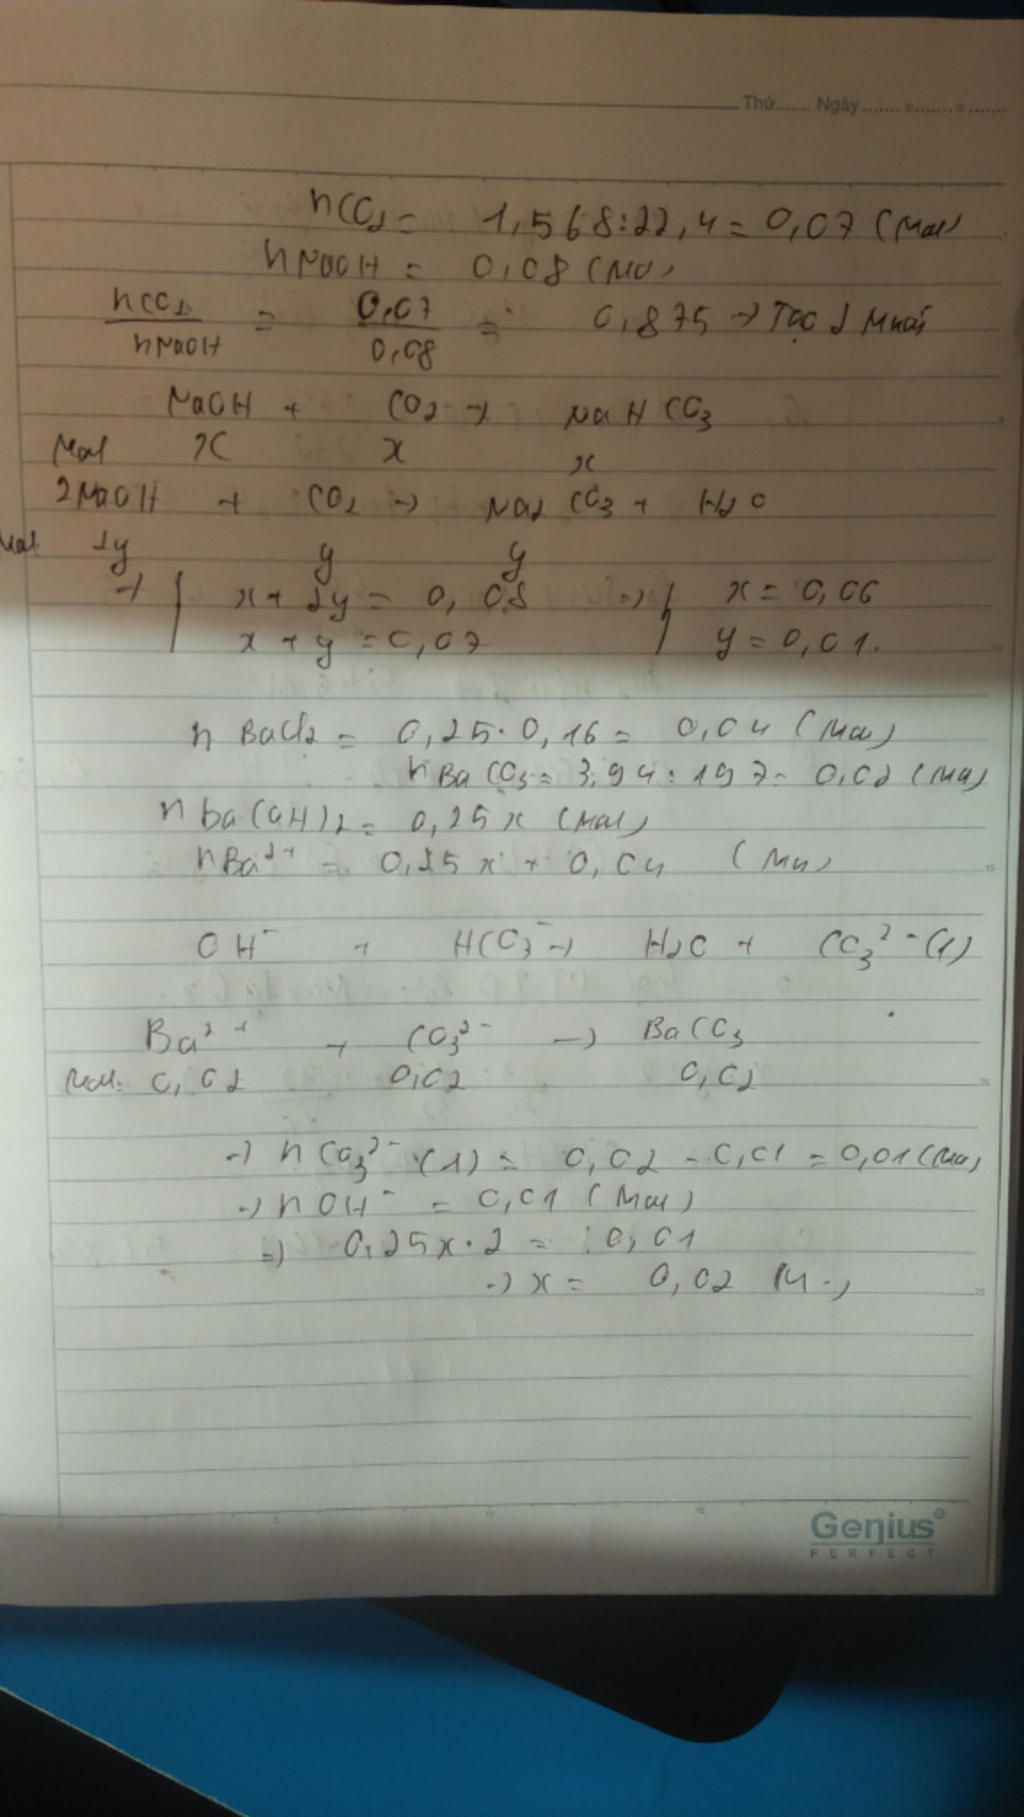 Thứ....... Ngày ....... o ....... o .......
nCO2 = 1,568:22,4 = 0,07 (mol)
nNaOH = 0,08 (mol)
nCO2 / nNaOH = 0,07 / 0,08 = 0,875 → Tạo 2 muối
NaOH + CO2 → NaHCO3
Mol x x x
2NaOH + CO2 → Na2CO3 + H2O
Mol 2y y y
→ { x + 2y = 0,08 → { x = 0,06
x + y = 0,07 y = 0,01.
n BaCl2 = 0,25.0,16 = 0,04 (mol)
nBaCO3 = 3,94:197 = 0,02 (mol)
n Ba(OH)2 = 0,25x (mol)
nBa2+ = 0,25x + 0,04 (mol)
OH- + HCO3- → H2O + CO3 2- (1)
Ba2+ + CO3 2- → BaCO3
Mol: 0,02 0,02 0,02
→ nCO3 2- (1) = 0,02 - 0,01 = 0,01 (mol)
→ nOH- = 0,01 (mol)
=> 0,25x.2 = 0,01
→ x = 0,02 M
Genius
PERFECT